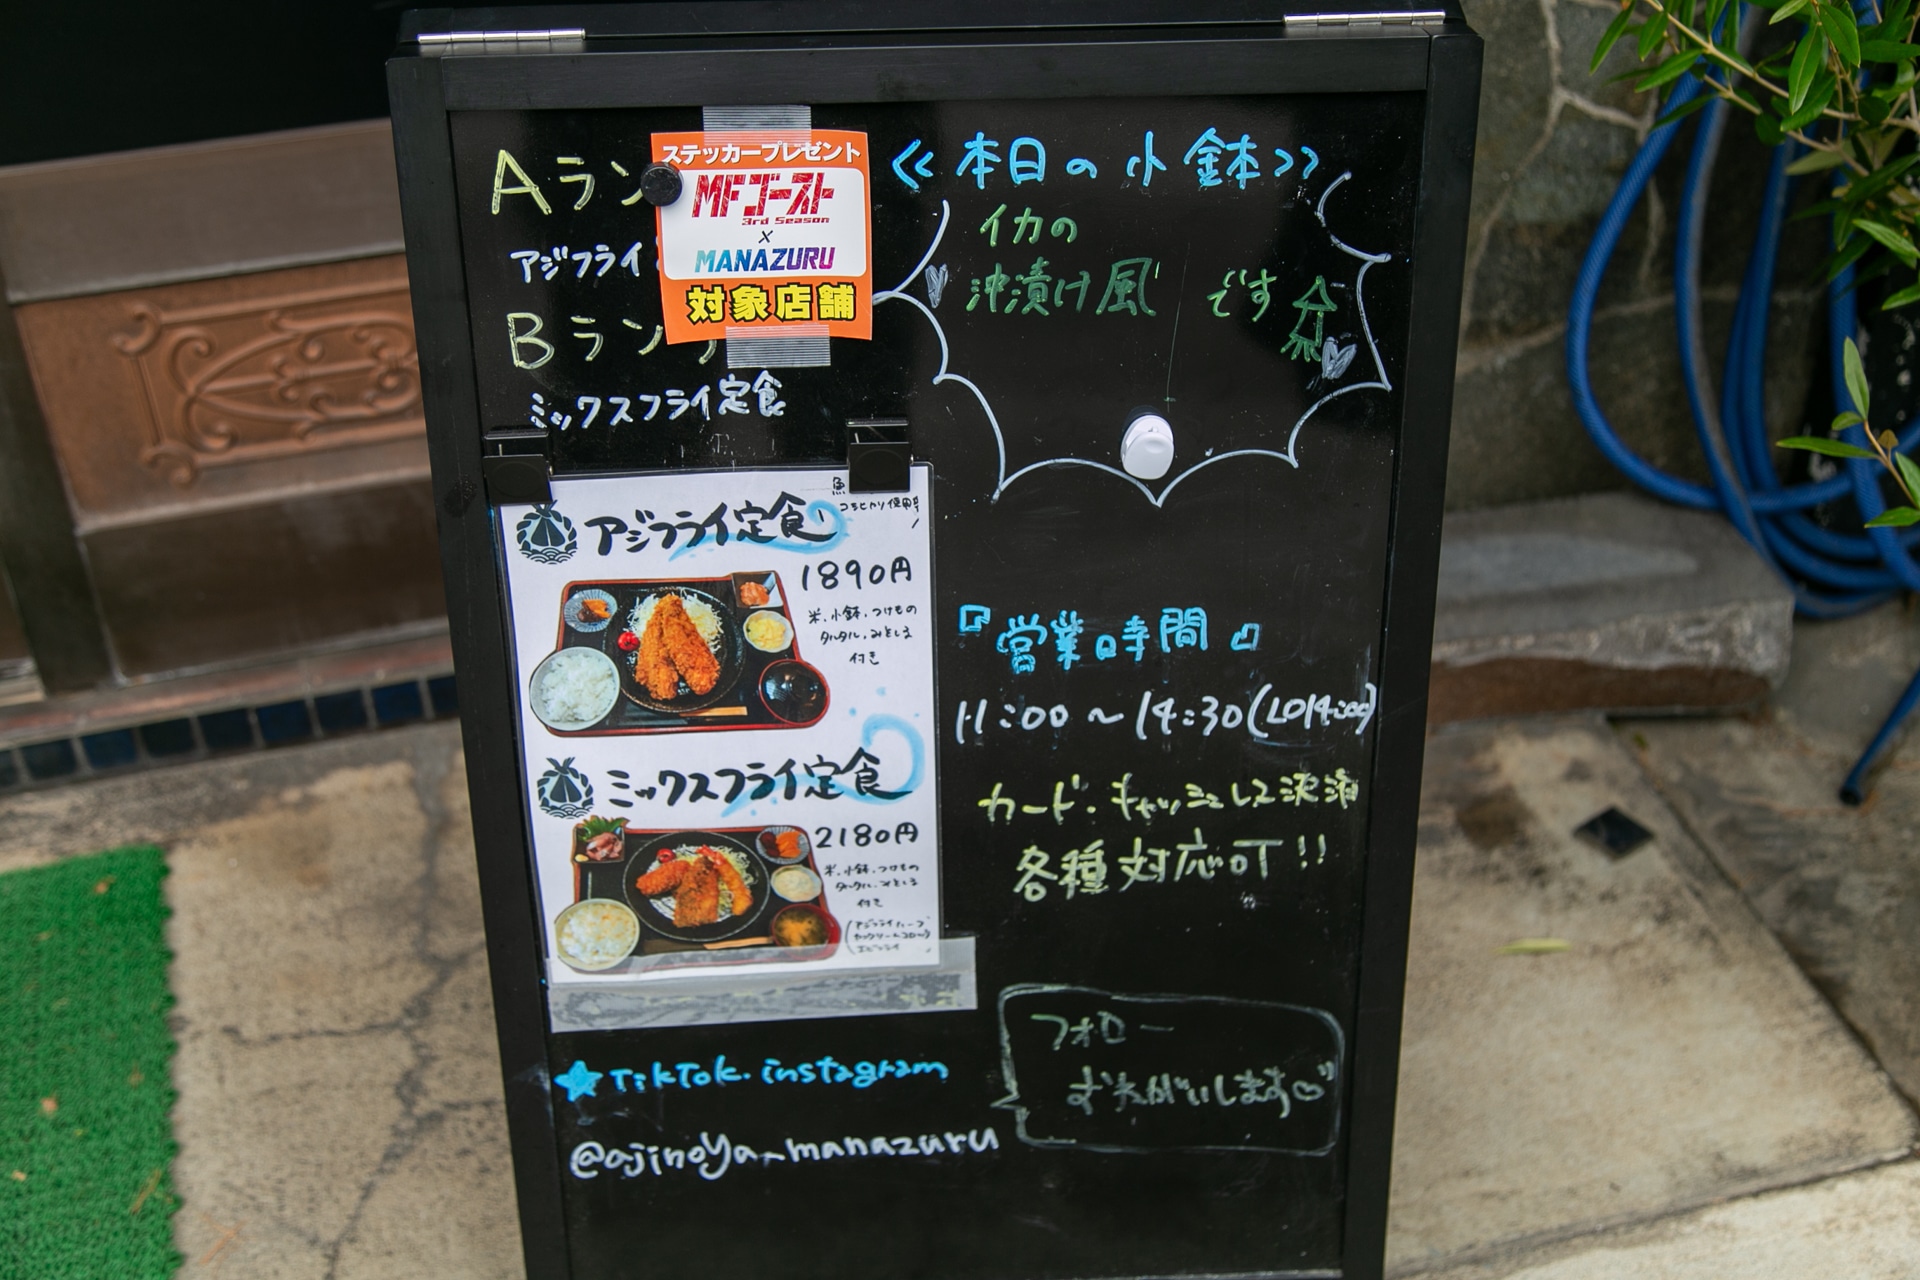 Aラン
アジフライ
Bランチ
ミックスフライ定食
ステッカープレゼント
MFゴースト
3rd Season
×
MANAZURU
対象店舗
<<本日の小鉢>>
イカの
沖漬け風
です
魚
コシヒカリ使用
アジフライ定食
1890円
米、小鉢、つけもの
タルタル、みそしる
付き
ミックスフライ定食
2180円
米、小鉢、つけもの
タルタル、みそしる
付き
エビフライ
『営業時間』
11:00〜14:30(LO14:00)
カード・キャッシュレス決済
各種対応可!!
★TikTok. instagram
@ajinoya_manazuru
フォロー
おねがいします♡